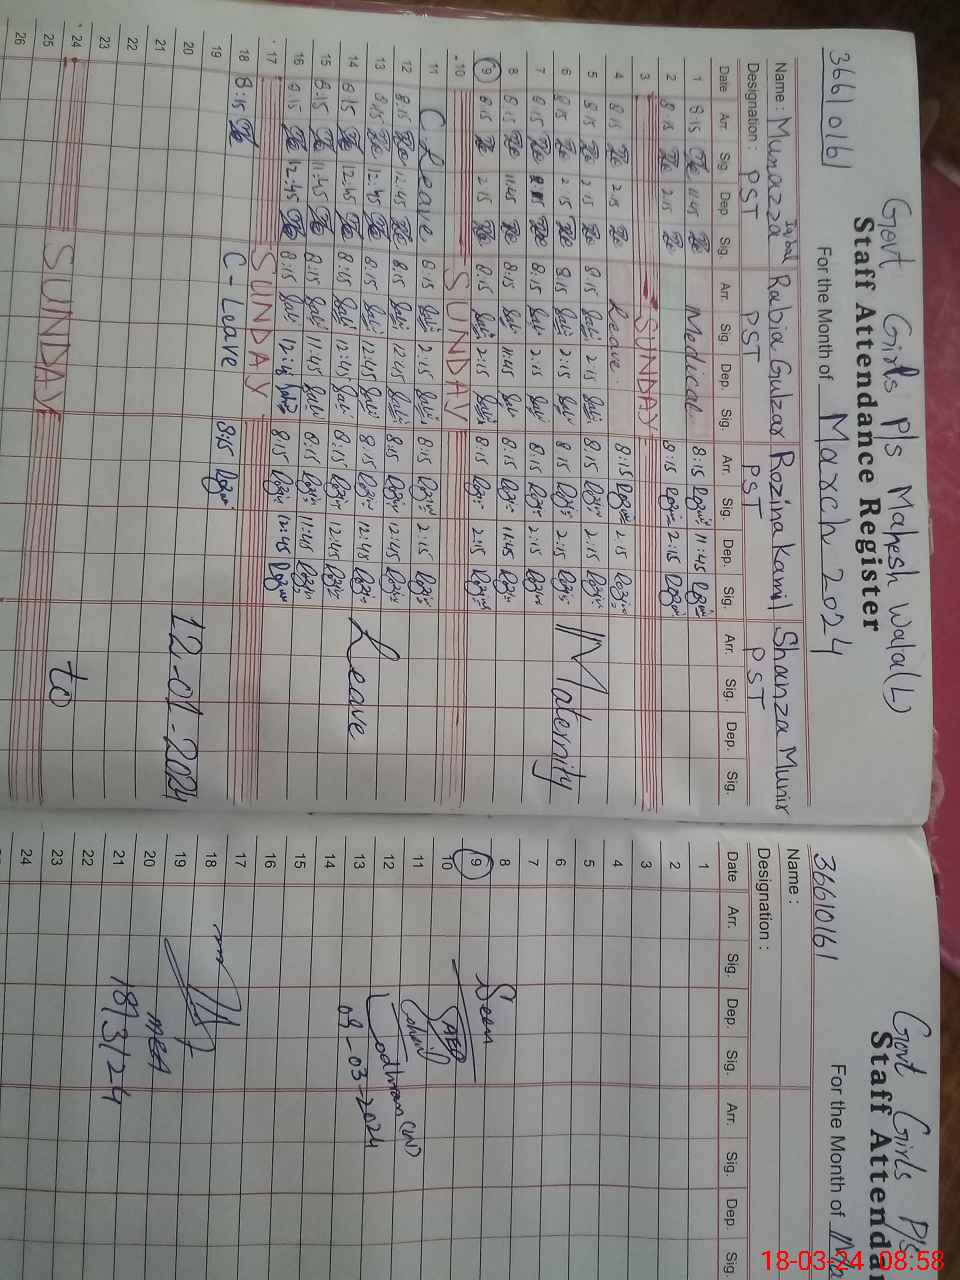 36610161
Govt Girls P/s Mahesh Wala(L)
Staff Attendance Register
For the Month of March 2024
Name : Munazza Iqbal Rabia Gulzar Rozina Kamil Shanza Munir
Designation : PST PST PST PST
Date Arr. Sig. Dep. Sig. Arr. Sig. Dep. Sig. Arr. Sig. Dep. Sig. Arr. Sig. Dep. Sig.
1 8:15 11:45 Medical 8:15 11:45
2 8:15 2:15 8:15 2:15
3 SUNDAY
4 8:15 2:15 Leave 8:15 2:15
5 8:15 2:15 8:15 2:15 8:15 2:15
6 8:15 2:15 8:15 2:15 8:15 2:15 Maternity
7 8:15 8:15 2:15 8:15 2:15
8 8:15 11:45 8:15 11:45 8:15 11:45
9 8:15 2:15 8:15 2:15 8:15 2:15
10 SUNDAY
11 C Leave 8:15 2:15 8:15 2:15
12 8:15 12:45 8:15 12:45 8:15 12:45
13 8:15 12:45 8:15 12:45 8:15 12:45
14 8:15 12:45 8:15 12:45 8:15 12:45 Leave
15 8:15 11:45 8:15 11:45 8:15 11:45
16 8:15 12:45 8:15 8:15 12:45
17 SUNDAY
18 8:15 C-Leave 8:15
19
20 12-01-2024
21
22
23
24 SUNDAY to
25
26
36610161
Govt Girls P/s
Staff Attenda
For the Month of Ma
Name :
Designation :
Date Arr. Sig. Dep. Sig. Arr. Sig. Dep. Sig.
1
2
3
4
5
6
7
8
9 Seen
10 AEO
11
12 Lodhran (W)
13 09-03-2024
14
15
16
17
18
19
20 MEA
21 18/3/24
22
23
24
18-03-24 08:58